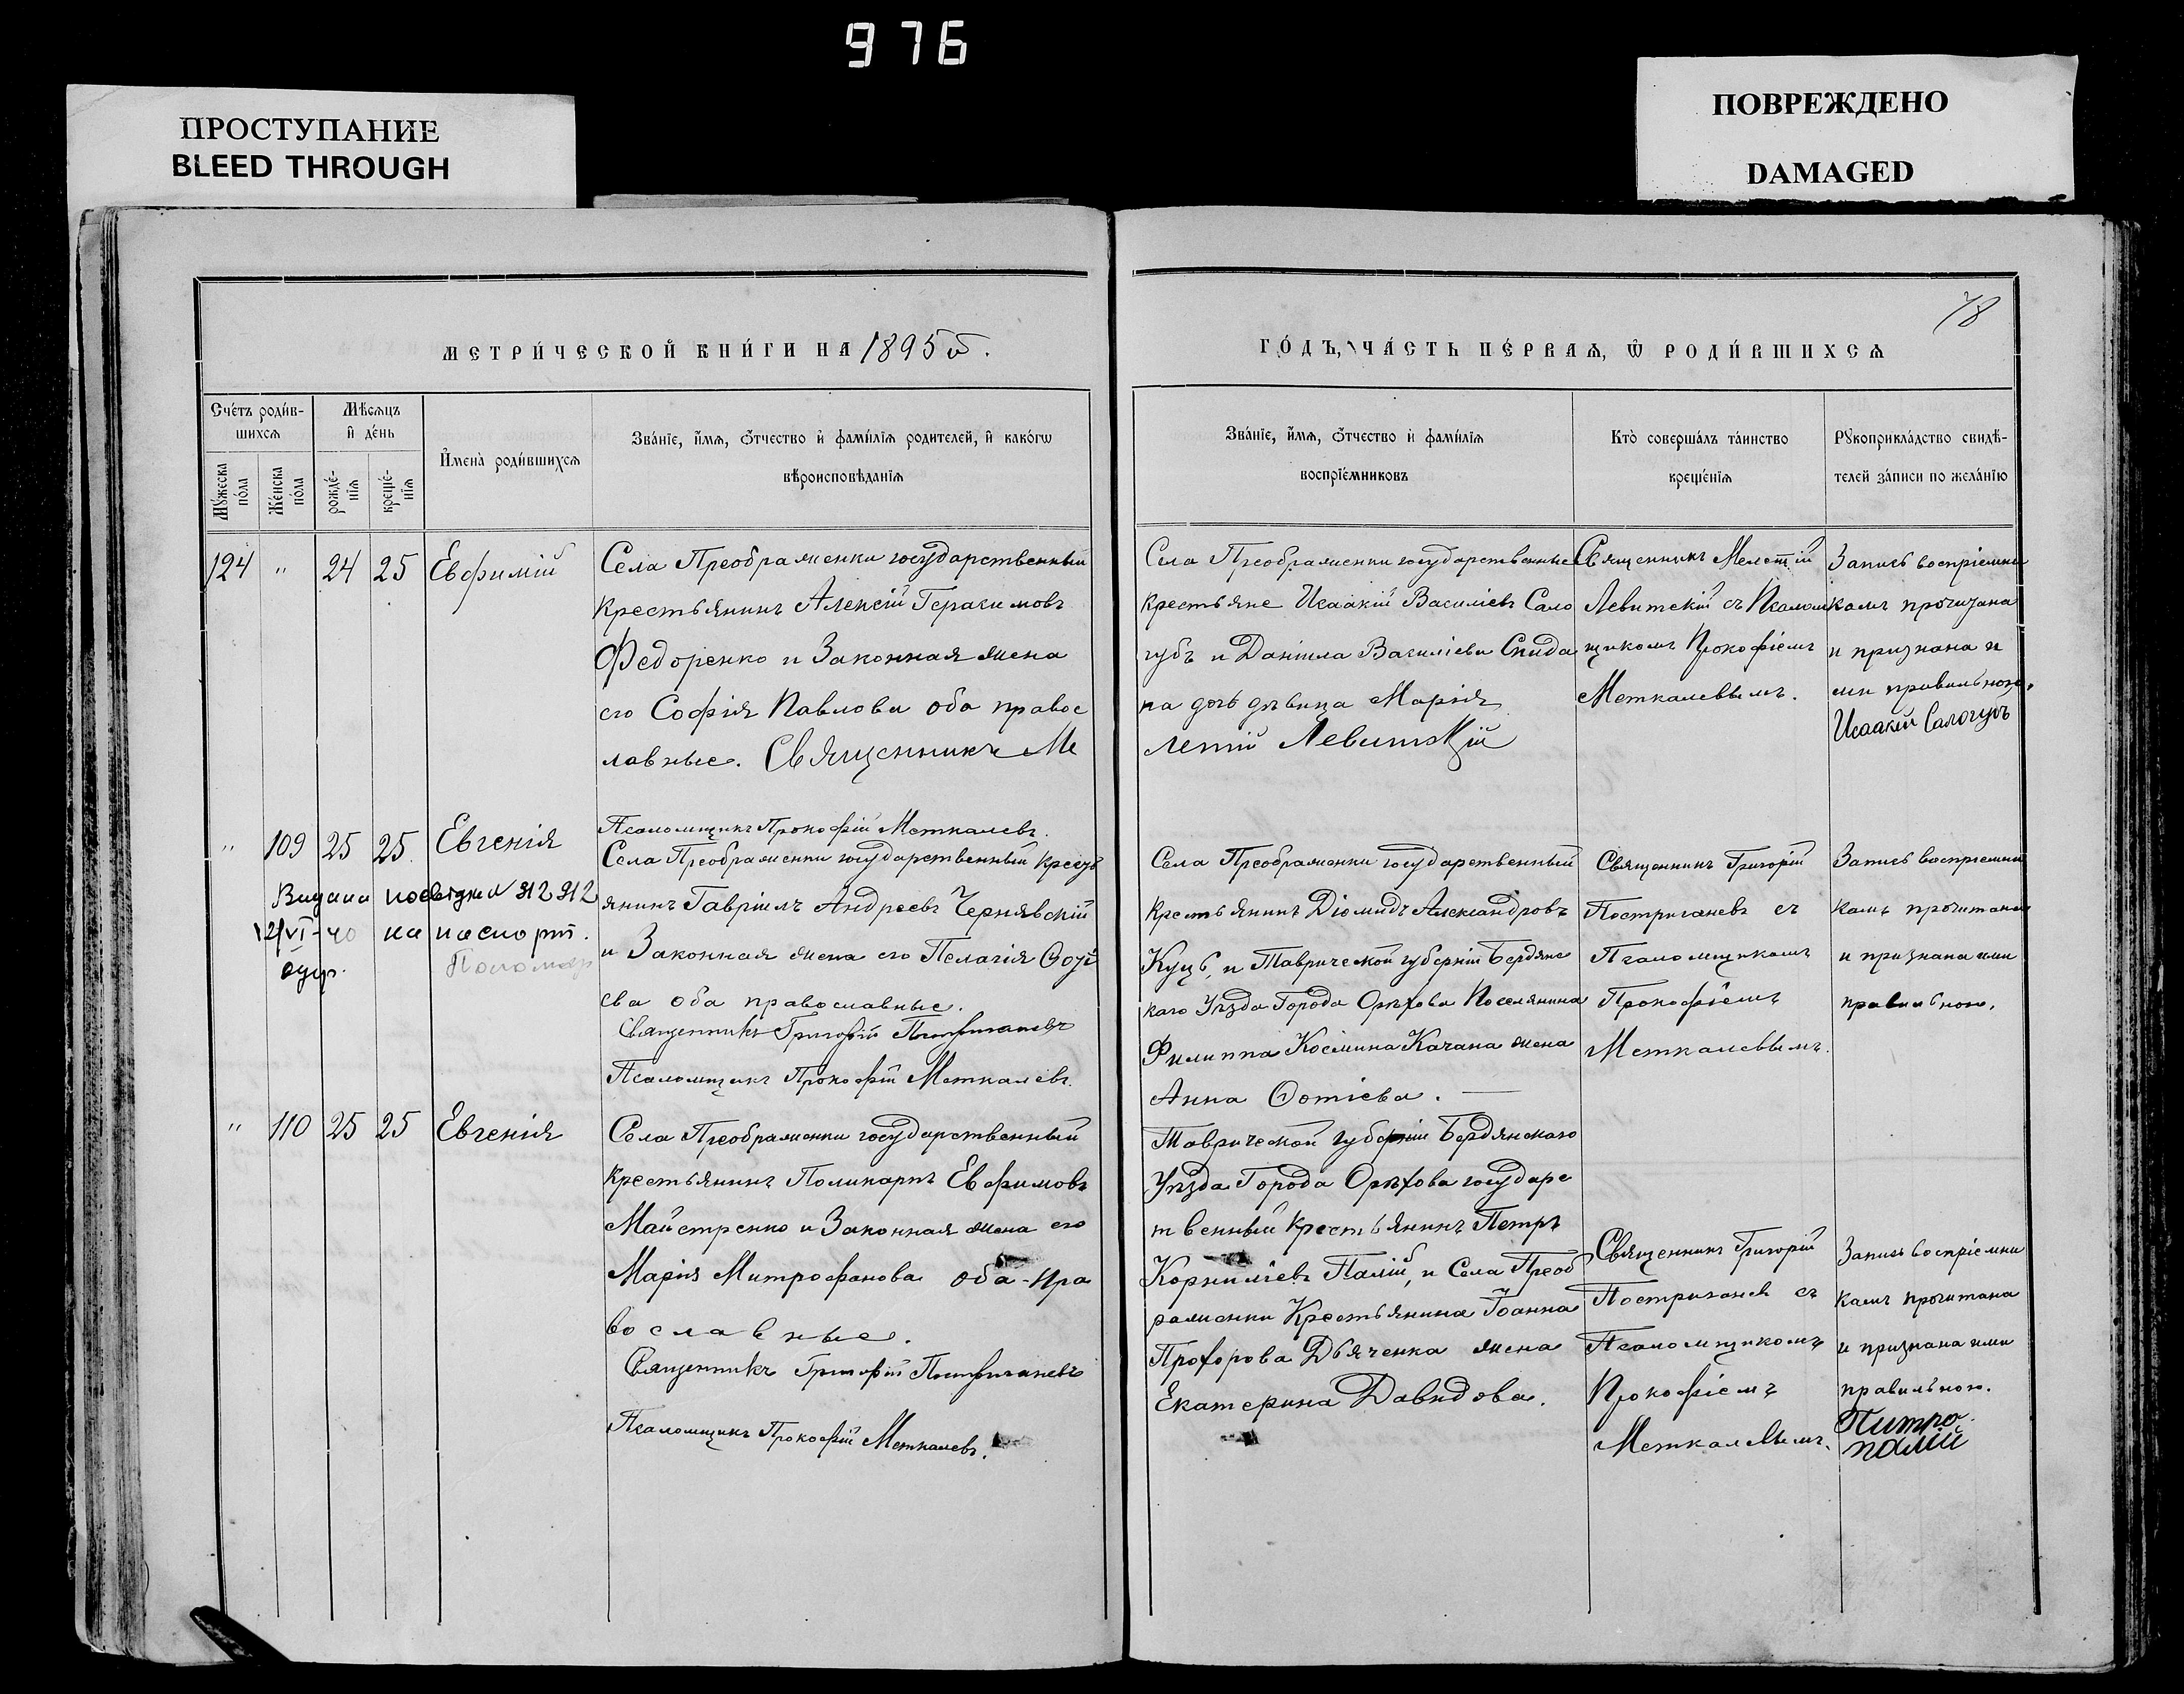 976
ПРОСТУПАНИЕ
BLEED THROUGH
ПОВРЕЖДЕНО
DAMAGED
78
МЕТРИ́ЧЕСКОЙ КНИ́ГИ НА 1895 й.
ГО́ДЪ, ЧА́СТЬ ПЕ́РВАѦ, Ѡ РОДИ́ВШИХСѦ
Сче́тъ роди́в-
шихсѧ
Мѣ́сѧцъ
и де́нь
Мꙋ́жеска
по́ла
Же́нска
по́ла
рожде́-
нїѧ
креще́-
нїѧ
И҆мена̀ роди́вшихсѧ
Зва́нїе, и҆́мѧ, ѻ҆́тчество и҆ фами́лїѧ родителей, и҆ како́гѡ
вѣроисповѣ́данїѧ
Зва́нїе, и҆́мѧ, ѻ҆́тчество и҆ фами́лїѧ
воспрїе́мниковъ
Кто̀ соверша́лъ та́инство
креще́нїѧ
Рꙋкоприкла́дство свидѣ́-
телей за́писи по жела́нїю
124 " 24 25 Евфимій
Села Преображенки государственный
крестьянинъ Алексій Герасимовъ
Федоренко и Законная жена
его Софія Павлова оба правос
лавные. Священникъ Ме
Псаломщикъ Прокофій Меткалевъ.
Села Преображенки государственные
крестьяне Исаакій Василіевъ Сало
губъ и Даніила Василіева Спида
на дочь дѣвица Марія
летій Левитскій
Священникъ Мелетій
Левитскій съ Псалом
щикомъ Прокофіемъ
Меткалевымъ.
Запись воспріемни
камъ прочитана
и признана и
ми правильною.
Исаакій Салогубъ
" 109 25 25. Евгенія
Видана посвідка N 312 912
12/VI-40 на паспорт.
Села Преображенки государственный крест
янинъ Гавріилъ Андреевъ Чернявскій
и Законная жена его Пелагія
ева оба православные.
Священникъ Григорій Постригачевъ
Псаломщикъ Прокофій Меткалевъ.
Села Преображенки государственный
крестьянинъ Діомидъ Александровъ
Куцъ, и Таврической губерніи Бердянс
каго Уѣзда Города Орѣхова Поселянина
Филиппа Косьмина Качана жена
Анна Ѳотіева.
Священникъ Григорій
Постригачевъ съ
Псаломщикомъ
Прокофіемъ
Меткалевымъ.
Запись воспріемни
камъ прочитана
и признана ими
правильною.
" 110 25 25 Евгенія
Села Преображенки государственный
крестьянинъ Поликарпъ Евфимовъ
Майстренко и Законная жена его
Марія Митрофанова оба - пра
вославные.
Священникъ Григорій Постригачевъ
Псаломщикъ Прокофій Меткалевъ.
Таврической губерніи Бердянскаго
Уѣзда Города Орѣхова государс
твенный крестьянинъ Петръ
Корниліевъ Палій, и Села Преоб
раженки Крестьянина Іоанна
Прохорова Дьяченка жена
Екатерина Давидова.
Священникъ Григорій
Постригачев съ
Псаломщикомъ
Прокофіемъ
Меткалевымъ.
Запись воспріемни
камъ прочитана
и признана ими
правильною.
Питро
палій